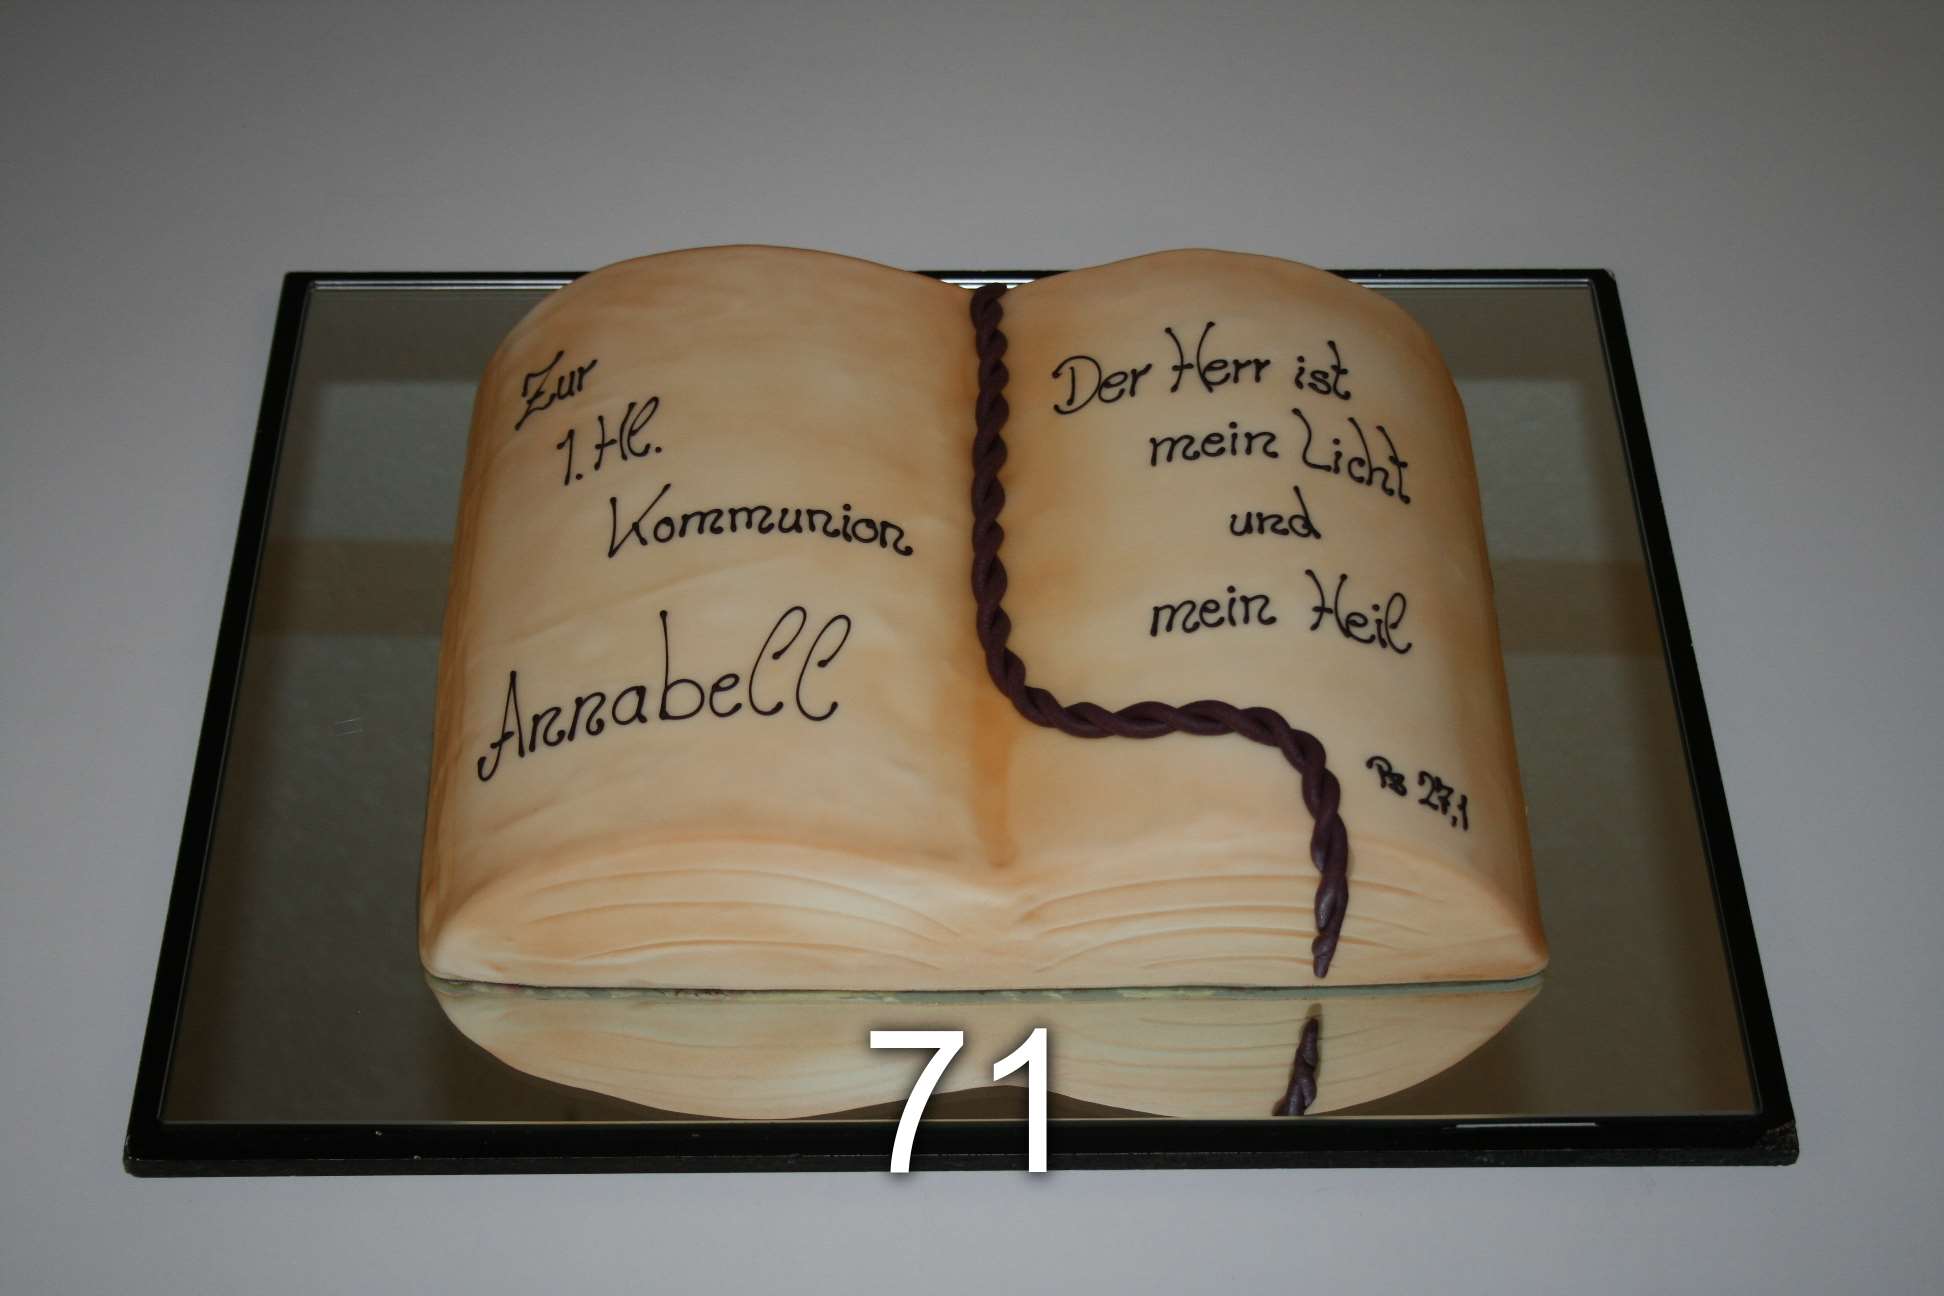 Zur
1. Hl.
Kommunion
Annabell
Der Herr ist
mein Licht
und
mein Heil
Ps 27,1
71